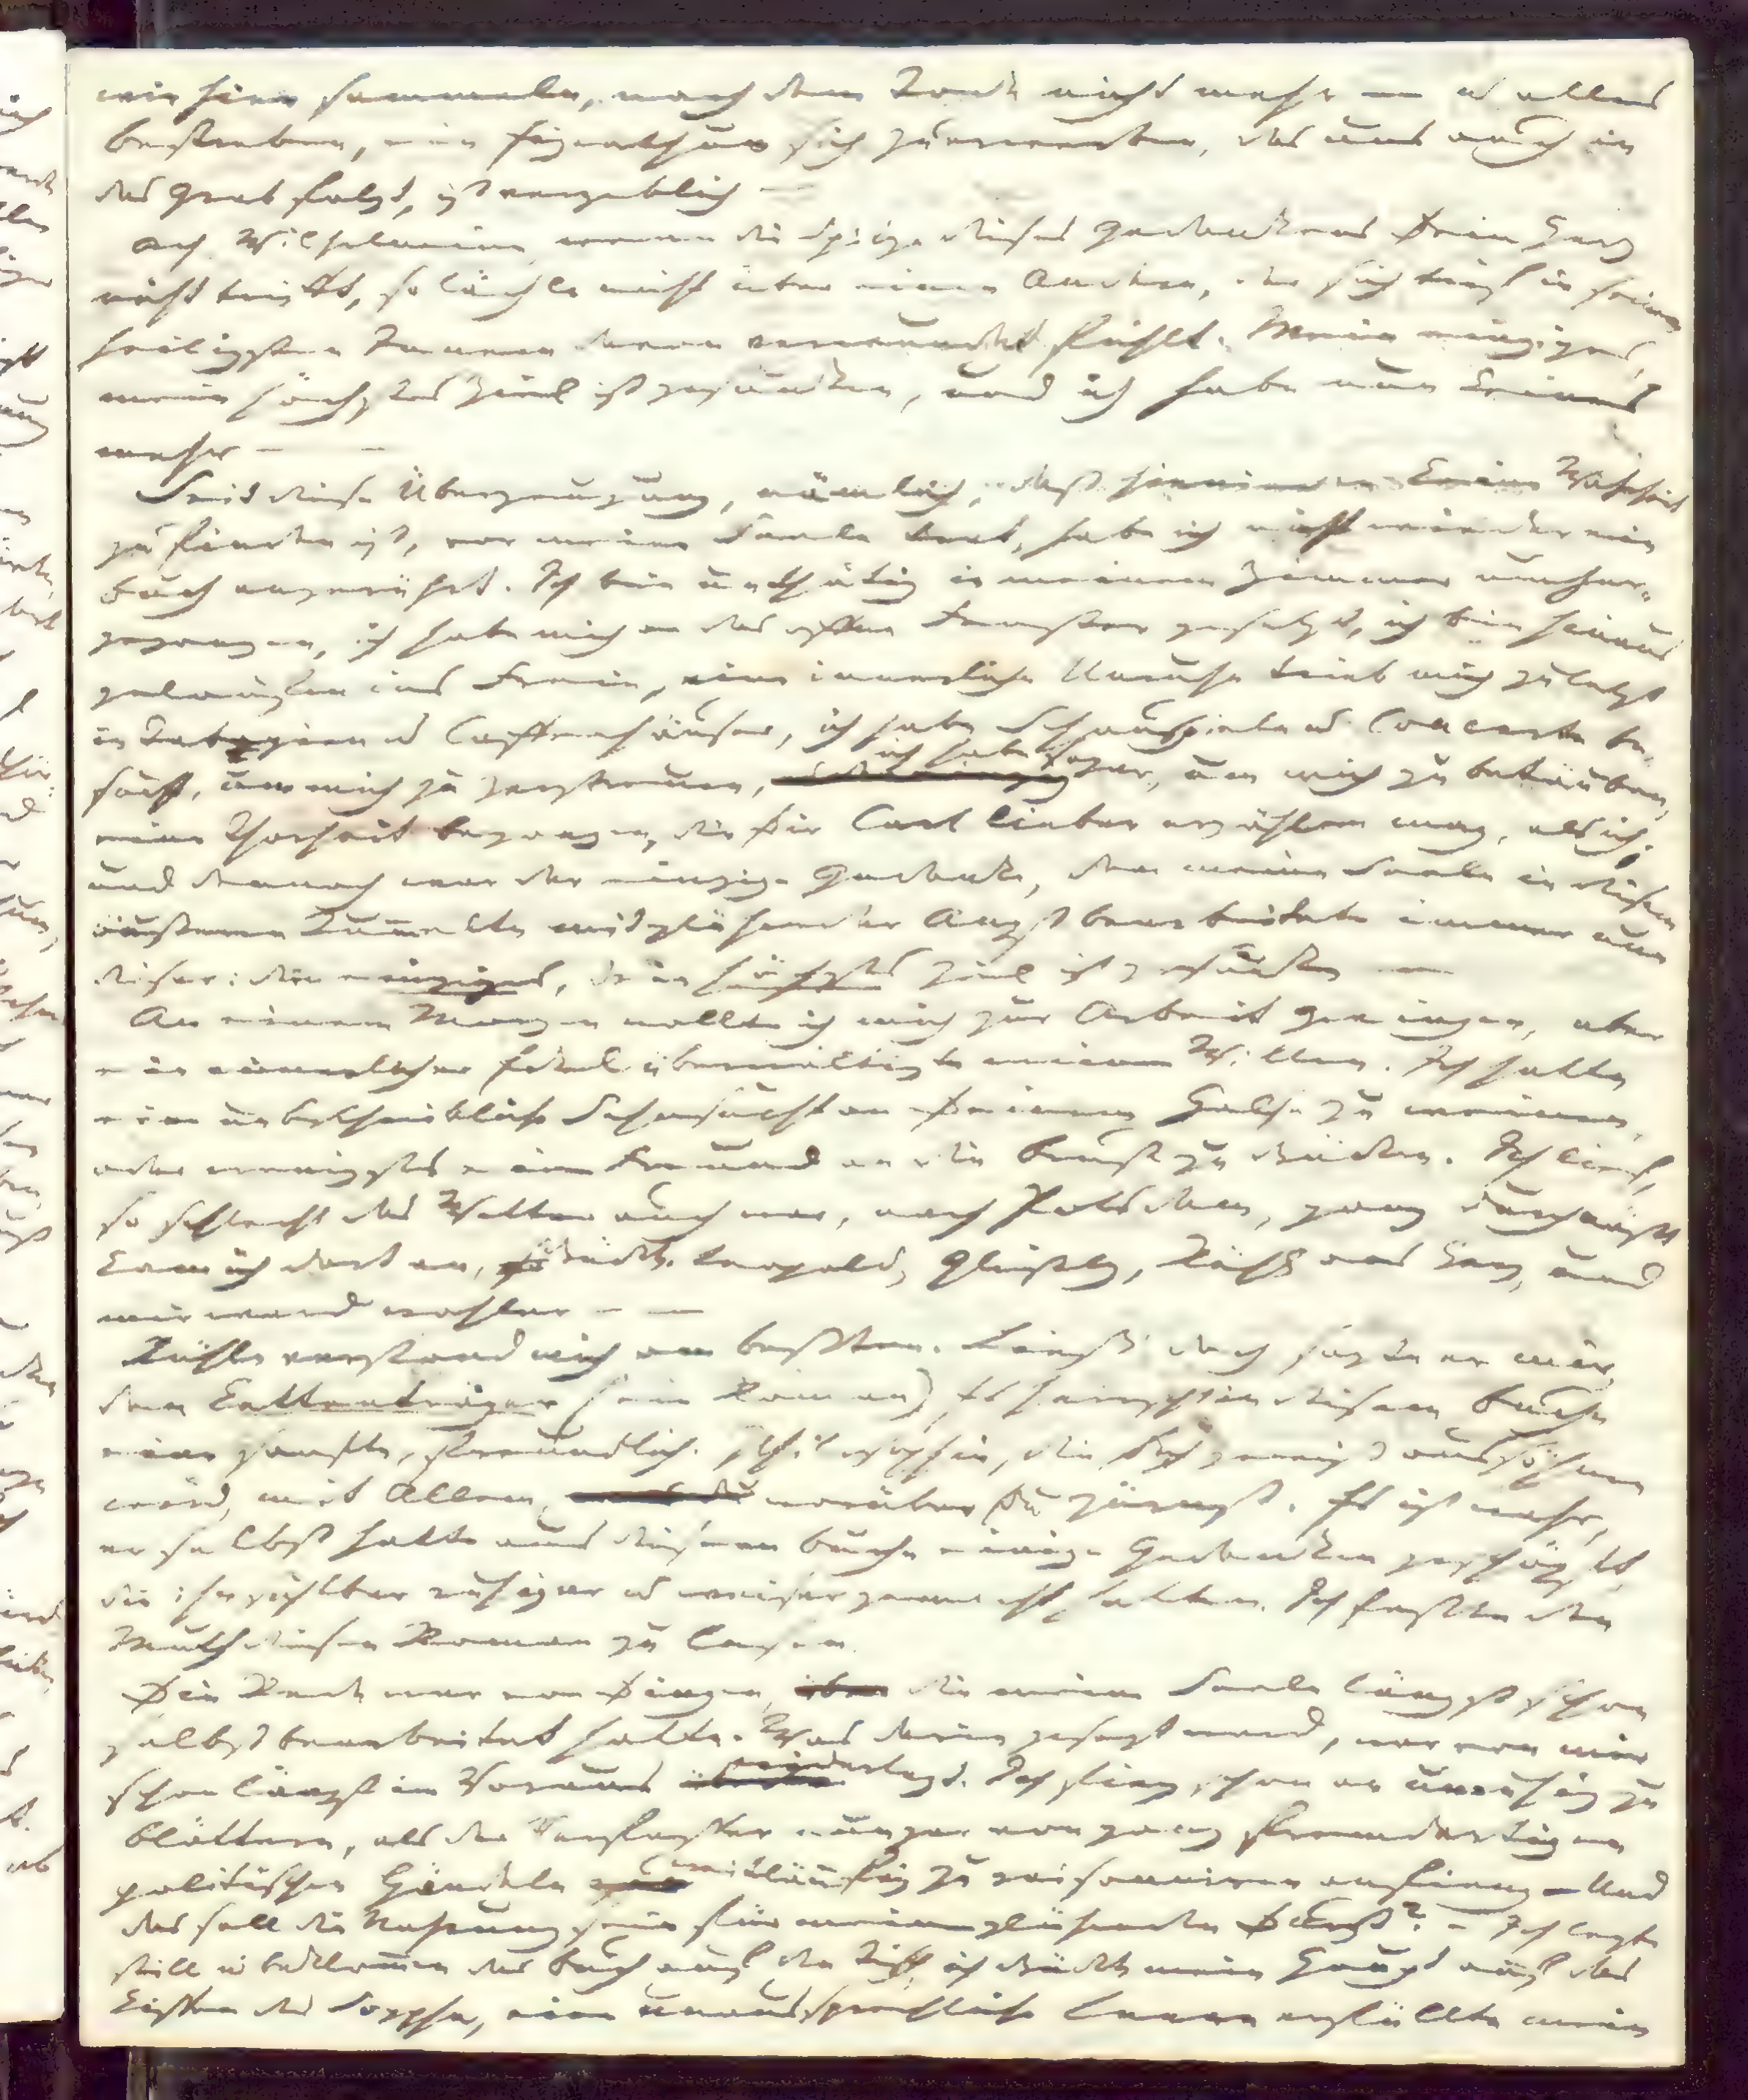 wir hier sammeln, nach dem Tode nicht mehr — u alles
Bestreben, ein Eigenthum sich zu erwerben, das uns auch in
das Grab folgt, ist vergeblich —
Ach, Wilhelmine, wenn die Spitze dieses Gedankens Dein Herz
nicht trifft, so lächle nicht über einen Andern, der sich tief in seinem
heiligsten Innern davon verwundet fühlt. Mein einziges,
mein höchstes Ziel ist gesunken, und ich habe nun keines
mehr — —
Seit diese Überzeugung, nämlich, daß hienieden keine Wahrheit
zu finden ist, vor meine Seele trat, habe ich nicht wieder ein
Buch angerührt. Ich bin unthätig in meinem Zimmer umher-
gegangen, ich habe mich an das offne Fenster gesetzt, ich bin hinaus
gelaufen ins Freie, eine innerliche Unruhe trieb mich zuletzt
in Tabagien u Caffeehäuser, ich habe Schauspiele u Concerte be-
sucht, um mich zu zerstreuen, ich habe sogar, um mich zu betäuben,
eine Thorheit begangen, die Dir Carl lieber erzählen mag, als ich;
und dennoch war der einzige Gedanke, den meine Seele in diesem
äußeren Tumulte mit glühender Angst bearbeitete immer nur
dieser: dein einziges, dein höchstes Ziel ist gesunken —
An einem Morgen wollte ich mich zur Arbeit zwingen, aber
ein innerlicher Ekel überwältigte meinen Willen. Ich hatte
eine unbeschreibliche Sehnsucht an Deinem Halse zu weinen,
oder wenigstens einen Freund an die Brust zu drücken. Ich lief,
so schlecht das Wetter auch war, nach Potsdam, ganz durchnäßt
kam ich dort an, drückte Leopold, Gleißenberg, Rühle ans Herz, und
mir ward wohler — —
Rühle verstand mich am besten. Lies doch, sagte er mir,
den Kettenträger (ein Roman). Es herrscht in diesem Buche
eine sanfte, freundliche Philosophie, die Dich gewiß aussöhnen
wird, mit Allem, worüber Du zürnst. Es ist wahr,
er selbst hatte aus diesem Buche einige Gedanken geschöpft,
die ihn sichtbar ruhiger u weiser gemacht hatten. Ich faßte den
Muth diesen Roman zu lesen.
Die Rede war von Dingen, die meine Seele längst schon
selbst bearbeitet hatte. Was darin gesagt ward, war von mir
schon längst im Voraus widerlegt. Ich fing schon an unruhig zu
blättern, als der Verfasser nun gar von ganz fremdartigen
politischen Händeln weitläufig zu raisonniren anfieng — Und
das soll die Nahrung sein für meinen glühenden Durst? — Ich legte
still u beklommen das Buch auf den Tisch, ich drückte mein Haupt auf das
Kissen des Sopha, eine unaussprechliche Leere erfüllte mein